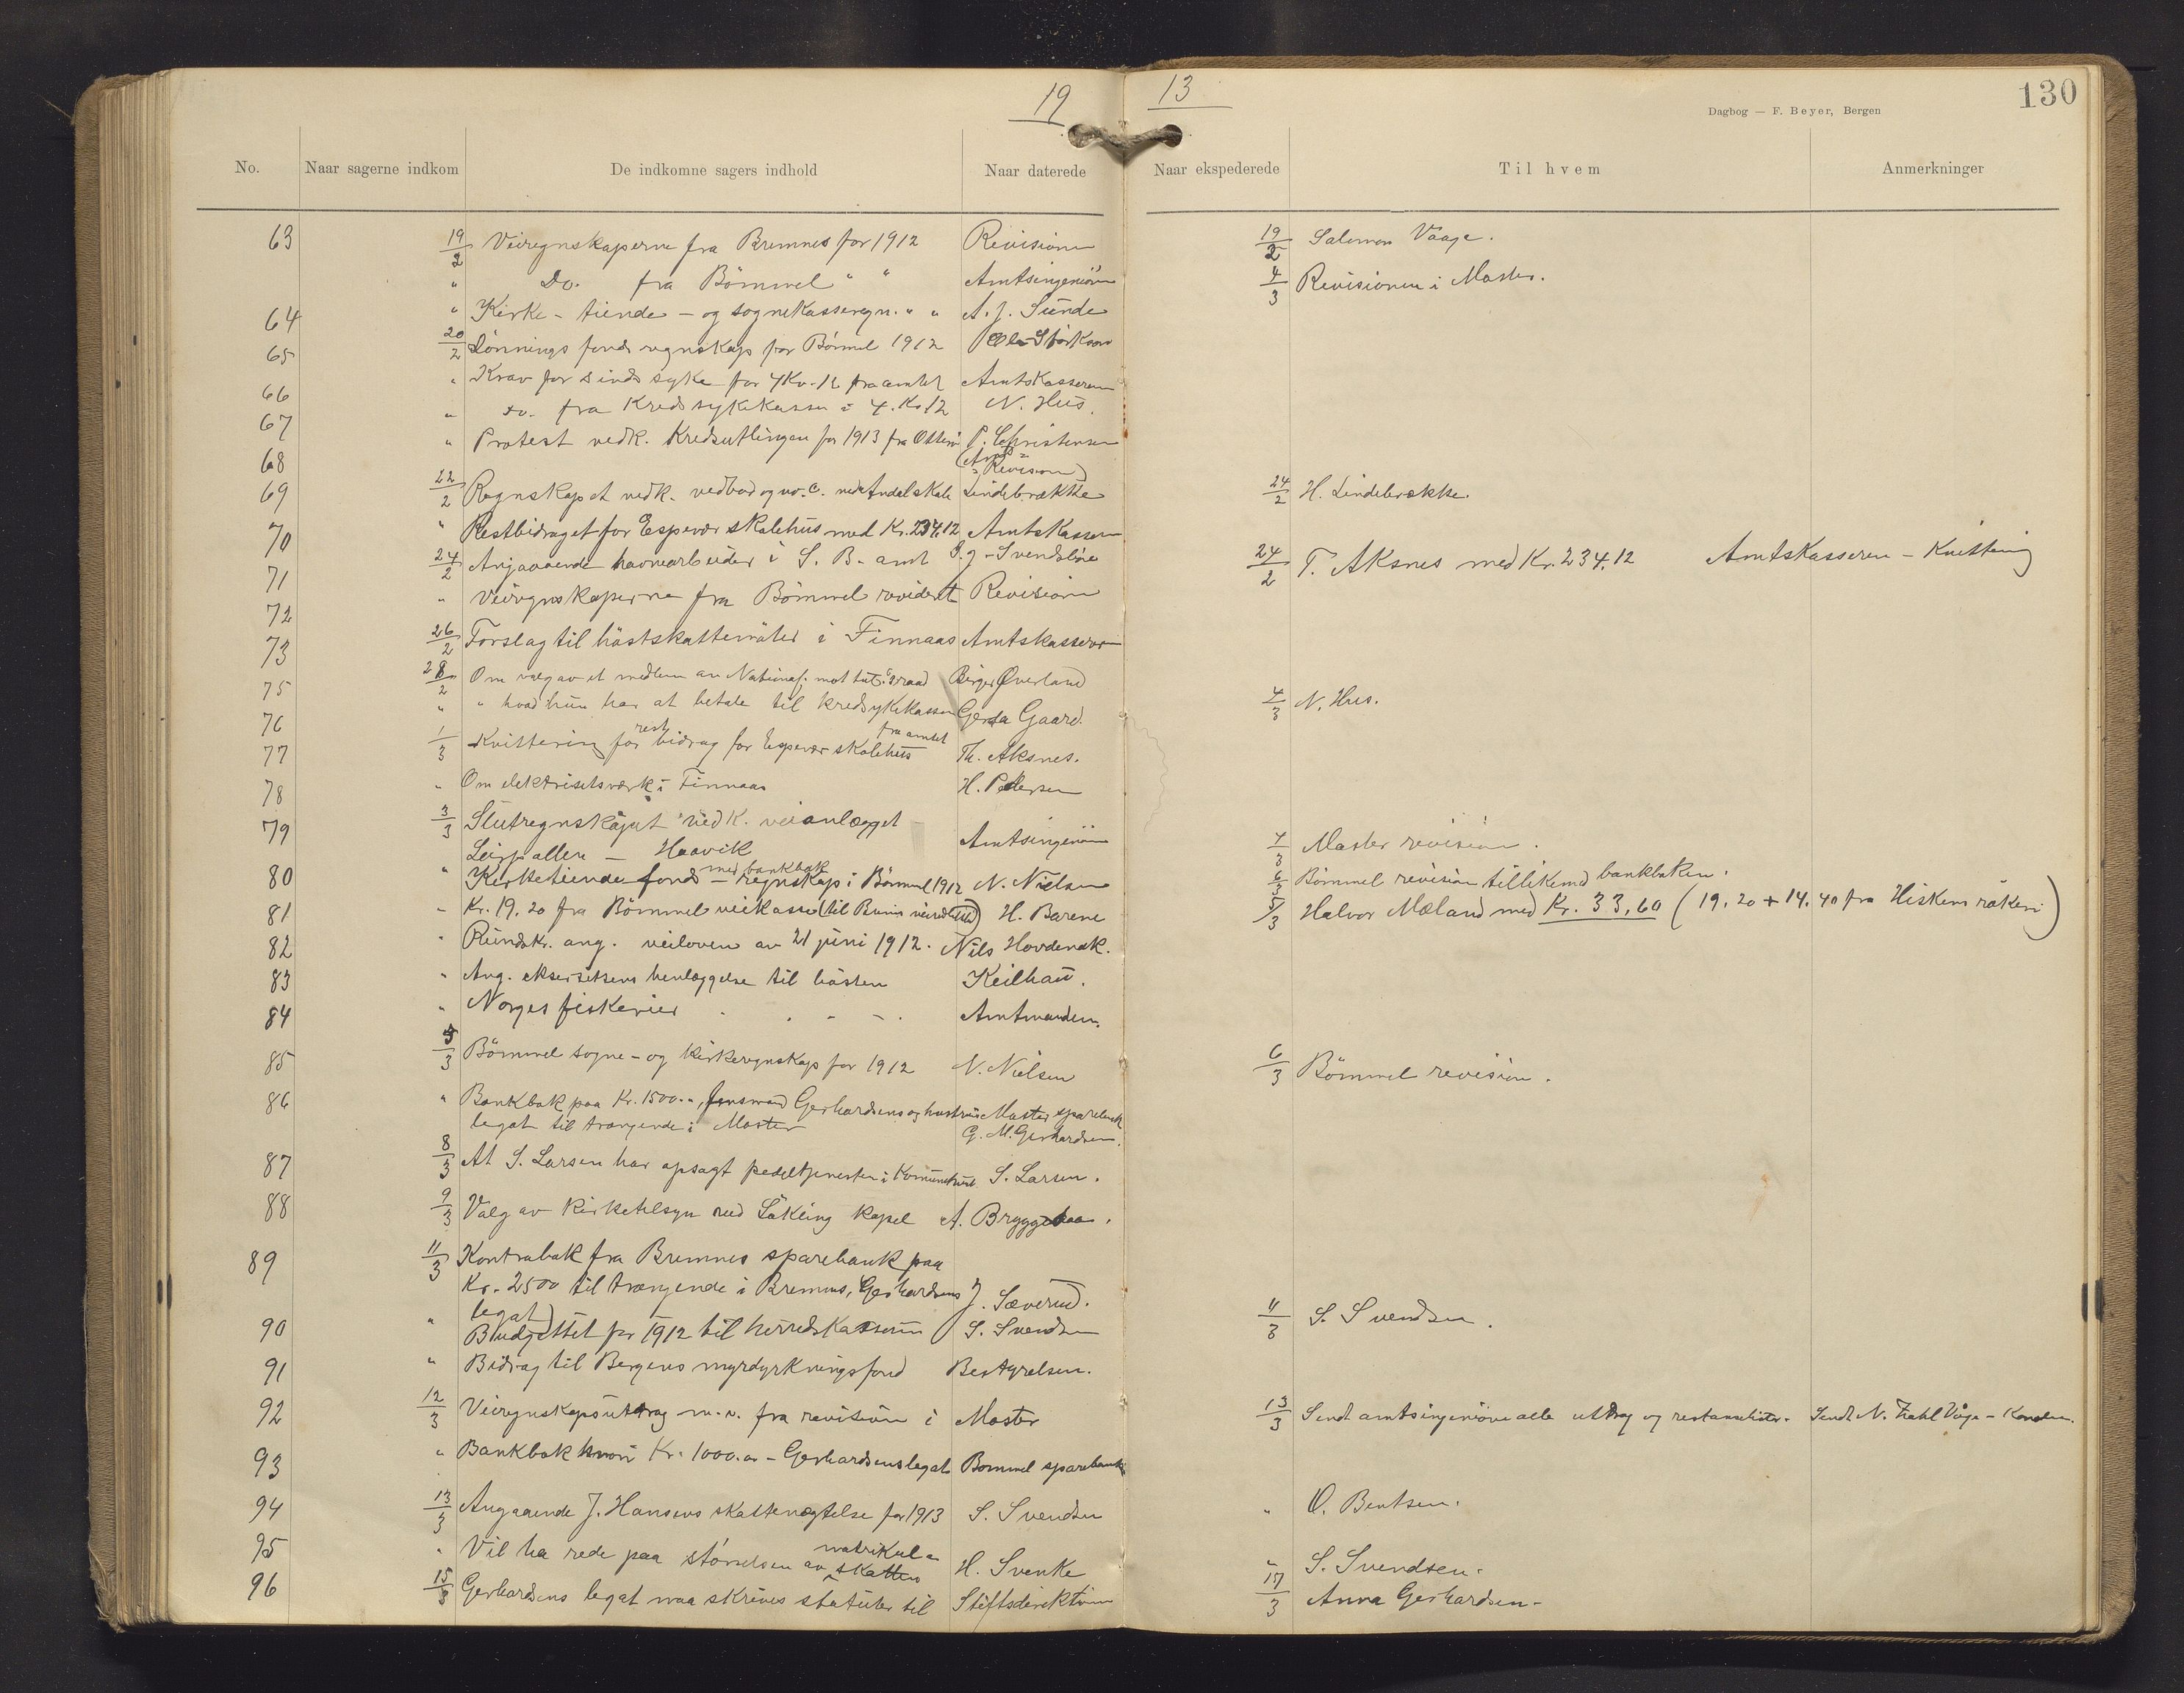 19 13
130
Dagbog — F. Beyer, Bergen
No. Naar sagerne indkom De indkomne sagers indhold Naar daterede Naar ekspederede Til hvem Anmerkninger
63 19/2 Veiregnskaperne fra Bremnes for 1912 Revisionen 19/2 Salomon Vaage.
" Do. fra Bömmel " " Amtsingeniören 4/3 Revisionen i Moster.
64 " Kirke- tiende- og sognekasseregn. " " A. J. Sunde
65 20/2 Lönnings fonds regnskap for Bömmel 1912 Ola Störkson
66 " Krav for sinds syke for 4 Kv.-12 fra amtet Amtskasseren
67 " do. fra Kredssykekassen i 4. Kv 12 N. Hus.
68 " Protest vedk. Kredsutlingen for 1913 fra P. Christensen
Revision)
69 22/2 Regnskapet vedk. vedbod og wc. ved skole Lindebrække 24/2 H. Lindebrække.
70 " Restbidraget for Espevær skolehus med Kr. 234,12 Amtskassen
71 24/2 Angaaende havnearbeider i S. B. amt Svendsöe 24/2 T. Aksnes med Kr. 234.12 Amtskasseren - Kvittering
72 " Veiregnskaperne fra Bömmel revidert Revision
73 26/2 Forslag til hästskattemäter i Finnaas Amtskasseren
75 28/2 Om valg av et medlem av Nationalf. mot tub. s raad Birger Överland
76 " " hvad hun har at betale til kredssykekassen Gerta Gaard. 4/3 N. Hus.
77 1/3 Kvittering for rest bidrag for Espevær skolehus fra amtet Th. Aksnes.
78 " Om elektrisitsværk i Finnaas H. Pedersen
79 3/3 Slutregnskapet vedk. veianlægget
Leirpollen — Haavik Amtsingeniören 4/3 Moster revision.
80 " Kirketiende fonds - regnskap i Bömmel 1912 med bankbok N. Nielsen 6/3 Bömmel revision tillikemd bankboken.
81 " Kr. 19.20 fra Bömmel veikasse (til veiredskap) H. Barene 5/3 Halvor Mæland med Kr. 33,60 (19.20 + 14.40 fra Hisken)
82 " Rundskr. ang. veiloven av 21 juni 1912. Nils Hovdenak.
83 " Ang. eksersitsens henlæggelse til hösten Keilhau.
84 " Norges fiskerier . . - - . Amtmanden.
85 5/3 Bömmel sogne- og kirkeregnskap for 1912 N. Nielsen 6/3 Bömmel revision.
86 " Bankbok paa Kr. 1500.-, Gerhardsens og hustrus Moster sparebank
legat til trængende i Moster G. M. Gerhardsen.
87 8/3 At S. Larsen har opsagt pedeltjenesten i Komunehuset S. Larsen.
88 9/3 Valg av kirketilsyn ved Läkling kapel A. Bryggebaa.
89 11/3 Kontrabok fra Bremnes sparebank paa
Kr. 2500 til trængende i Bremnes, Gerhardsens J. Sæverud.
legat)
90 " Budgettet for 1912 til herredskasseren S. Svendsen 11/3 S. Svendsen.
91 " Bidrag til Bergens myrdyrkningsfond Bestyrelsen.
92 12/3 Veiregnskapsutdrag m. v. fra revisionen i Moster 13/3 Sendt amtsingeniören alle utdrag og restanselister. Sendt N. Våge -
93 " Bankbok hvori Kr. 1000.00 - Gerhardsens legat Bommel sparebank
94 13/3 Angaaende J. Hansens skattenægtelse for 1913 S. Svendsen " O. Bentsen.
95 " Vil ha rede paa störrelsen av matrikul- skatten H. Svenke " S. Svendsen.
96 15/3 Gerhardsens legat maa skrives statuter til Stiftsdirektionen 17/3 Anna Gerhardsen.